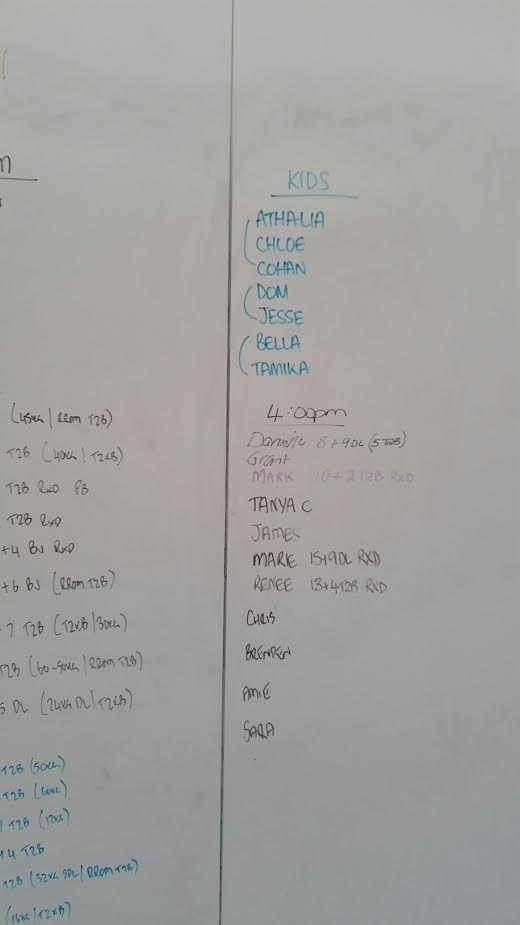 (45KG / RROM T2B)
T2B (40KG / T2KB)
T2B RXD PB
T2B RXD
+4 BJ RXD
+6 BJ (RROM T2B)
7 T2B (T2KB / 30KG)
T2B (60-50KG / RROM T2B)
5 DL (24KG DL / T2KB)
T2B (50KG)
T2B (60KG)
1 T2B (12KG)
+4 T2B
T2B (32KG SDL / RROM T2B)
(16KG / T2KB)
KIDS
ATHALIA
CHLOE
COHAN
DOM
JESSE
BELLA
TAMIKA
4:00pm
Danielle 8+9DL (5T2B)
Grant
MARK 10+2T2B RXD
TANYA C
JAMES
MARIE 15+9DL RXD
RENEE 13+4T2B RXD
CHRIS
BRENDEN
AMIE
SARA